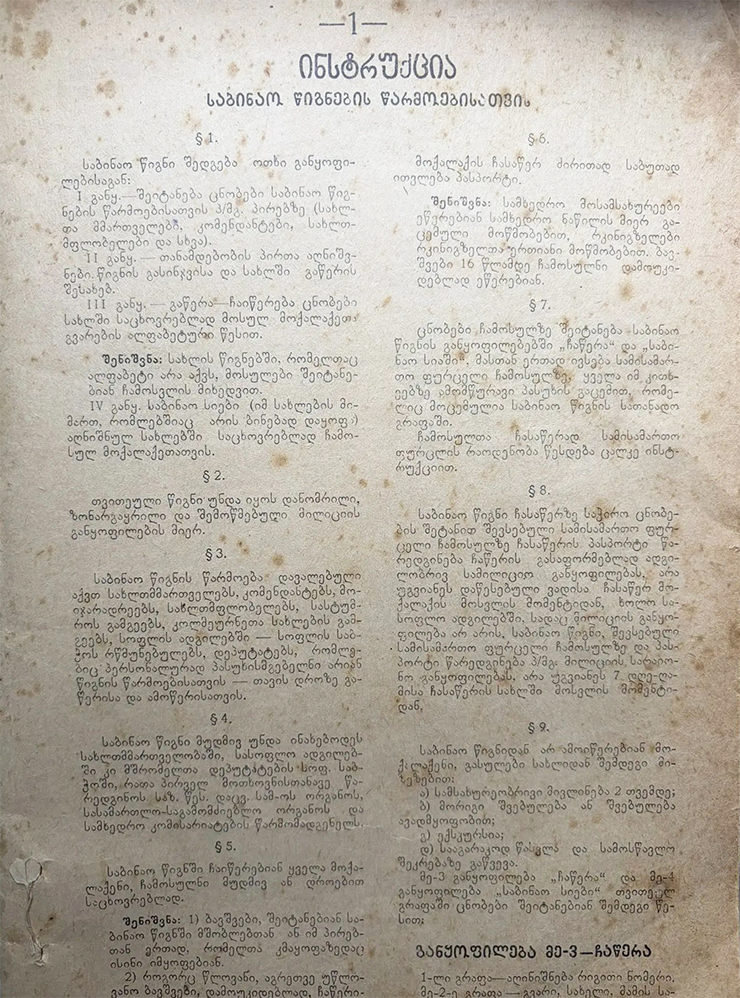 —1—
ინსტრუქცია
საბინაო წიგნების წარმოებისათვის
§ 1.
საბინაო წიგნი შედგება ოთხი განყოფი-
ლებისაგან:
I განყ.—შეიტანება ცნობები საბინაო წიგ-
ნების წარმოებისათვის პ/მგ. პირებზე (სახლ-
თა მმართველებზ, კომენდანტები, სახლთ-
მფლობელები და სხვა).
II განყ. — თანამდებობის პირთა აღნიშვ-
ნები. წიგნის გასინჯვისა და სახლში გაწერის
შესახებ.
III განყ. — გაწერა—ჩაიწერება ცნობები
სახლში საცხოვრებლად მოსულ მოქალაქეთა
გვარების ალფაბეტური წესით.
შენიშვნა: სახლის წიგნებში, რომელთაც
ალფაბეტი არა აქვს, მოსულები შეიტანე-
ბიან ჩამოსვლის მიხედვით.
IV განყ. საბინაო სიები (იმ სახლების მი-
მართ, რომლებშიაც არის ბინებად დაყოფა)
აღნიშნულ სახლებში საცხოვრებლად ჩამო-
სულ მოქალაქეთათვის.
§ 2.
თვითეული წიგნი უნდა იყოს დანომრილი,
ზონარგაყრილი და შემოწმებული მილიციის
განყოფილების მიერ.
§ 3.
საბინაო წიგნის წარმოება დავალებული
აქვთ სახლთმმართველებს, კომენდანტებს, მო-
იჯარადრეებს, სახლთმფლობელებს, სასტუმ-
როს გამგეებს, კოლმეურნეთა სახლების გამ-
გეებს, სოფლის ადგილებში — სოფლის საბ-
ჭოს რწმუნებულებს, დეპუტატებს, რომლე-
ბიც პერსონალურად პასუხისმგებელნი არიან
წიგნის წარმოებისათვის — თავის დროზე გა-
წერისა და ამოწერისათვის.
§ 4.
საბინაო წიგნი მუდმივ უნდა ინახებოდეს
სახლთმმართველობაში, სასოფლო ადგილებ-
ში კი მშრომელთა დეპუტატების სოფ. საბ-
ჭოში, რათა პირველ მოთხოვნისთანავე წა-
რედგინოს საზ. წეს. დაცვ. სამ-ოს ორგანოს,
სასამართლო-საგამომძიებლო ორგანოს და
სამხედრო კომისარიატების წარმომადგენელს.
§ 5.
საბინაო წიგნში ჩაიწერებიან ყველა მოქა-
ლაქენი, ჩამოსულნი მუდმივ ან დროებით
საცხოვრებლად.
შენიშვნა: 1) ბავშვები, შეიტანებიან სა-
ბინაო წიგნში მშობლებთან ან იმ პირებ-
თან ერთად, რომელთა კმაყოფაზედაც
ისინი იმყოფებიან.
2) როგორც წლოვანი, აგრეთვე უწლო-
ვანო ბავშვები, დამოუკიდებლად, ჩაწერი-
§ 6.
მოქალაქის ჩასაწერ ძირითად საბუთად
ითვლება პასპორტი.
შენიშვნა: სამხედრო მოსამსახურეები
ეწერებიან სამხედრო ნაწილის მიერ გა-
ცემული მოწმობებით, რკინიგზელები
რკინიგზელთა ერთიანი მოწმობით. ბავ-
შვები 16 წლამდე ჩამოსულნი დამოუკი-
დებლად ეწერებიან.
§ 7.
ცნობები ჩამოსულზე შეიტანება საბინაო
წიგნის განყოფილებებში „ჩაწერა“ და „საბი-
ნაო სიაში“, მასთან ერთად ივსება სამისამარ-
თო ფურცელი ჩამოსულზე, ყველა იმ კითხ-
ვებზე ამომწურავი პასუხის გაცემით, რომე-
ლიც მოცემულია საბინაო წიგნის სათანადო
გრაფაში.
ჩამოსულთა ჩასაწერად სამისამართო
ფურცლის რაოდენობა წესდება ცალკე ინსტ-
რუქციით.
§ 8.
საბინაო წიგნი ჩასაწერზე საჭირო ცნობე-
ბის შეტანით შევსებული სამისამართო ფურ-
ცელი ჩამოსულზე ჩასაწერის პასპორტი წა-
რედგინება ჩაწერის გასაფორმებლად ადგი-
ლობრივ სამილიციო განყოფილებას, არა
უგვიანეს დაწესებული ვადისა ჩასაწერ მო-
ქალაქის მოსვლის მომენტიდან, ხოლო სა-
სოფლო ადგილებში, სადაც მილიციის განყო-
ფილება არ არის, საბინაო წიგნი, შევსებული
სამისამართო ფურცელი ჩამოსულზე და პას-
პორტი წარედგინება პ/მგ. მილიციის სარაიო-
ნო განყოფილებას, არა უგვიანეს 7 დღე-ღა-
მისა ჩასაწერის სახლში მოსვლის მომენტი-
დან.
§ 9.
საბინაო წიგნიდან არ ამოიწერებიან მო-
ქალაქენი, გასულები სახლიდან შემდეგი მი-
ზეზებით:
ა) სამსახურეობრივი მივლინება 2 თვემდე;
ბ) მორიგი შვებულება ან შვებულება
ავადმყოფობით;
გ) ექსკურსია;
დ) სააგარაკოდ წასვლა და სამოსწავლო
შეკრებაზე გაწვევა.
მე-3 განყოფილება „ჩაწერა“ და მე-4
განყოფილება „საბინაო სიები“ თვითეულ
გრაფაში ცნობები შეიტანებიან შემდეგი წე-
სით:
განყოფილება მე-3—ჩაწერა
1-ლი გრაფა—აღინიშნება რიგითი ნომერი.
მე-2-ე გრაფა — გვარი, სახელი, მამის სა-